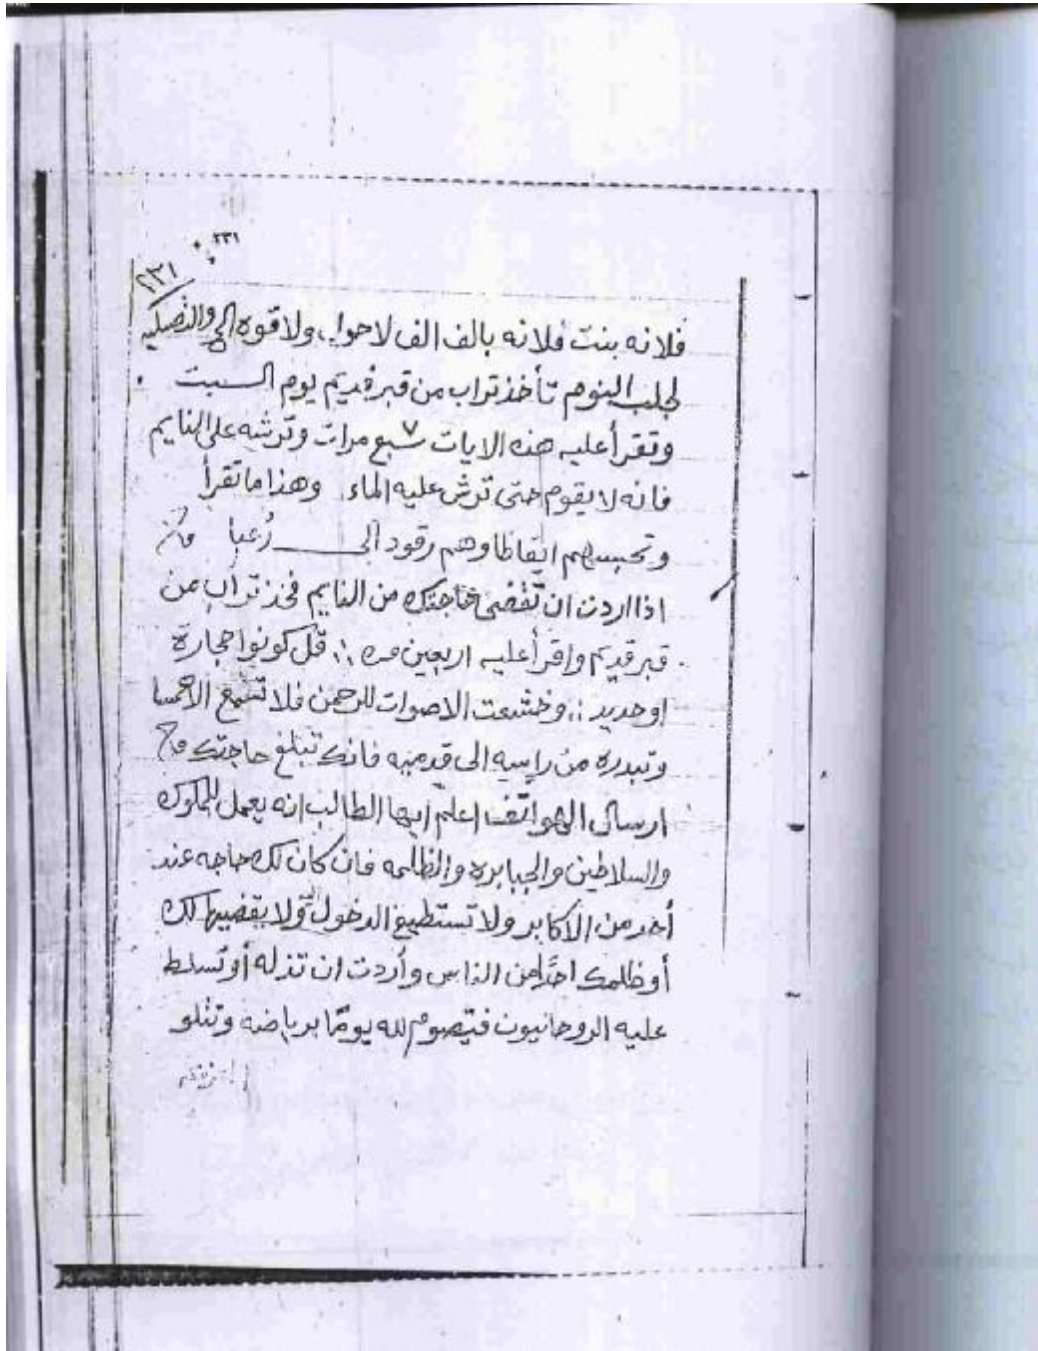 ٢٣١
٢٣١
فلانه بنت فلانه بالف الف لاحول ولا قوه
لجلب النوم تأخذ تراب من قبر قديم يوم السبت
وتقرأ عليه هذه الايات ٧ سبع مرات وترشه على النايم
فانه لا يقوم حتى ترش عليه الماء وهذا ما تقرأ
وتحسبهم ايقاظا وهم رقود الى رُعبا
اذا اردت ان تقضى حاجتك من النايم فخذ تراب من
قبر قديم واقرأ عليه اربعين مره ؛ قل كونوا حجارة
او حديد ؛ وخشعت الاصوات للرحمن فلا تسمع الا همسا
وتبدره من راسه الى قدميه فانك تبلغ حاجتك
ارسال الهواتف اعلم ايها الطالب انه يعمل للملوك
والسلاطين والجبابره والظلمه فان كان لك حاجه عند
أحد من الاكابر ولا تستطيع الدخول ولا يقضيها لك
أو ظلمك احدًا من الناس وأردت ان تذله أو تسلط
عليه الروحانيون فتصوم لله يومًا برياضه وتتلو